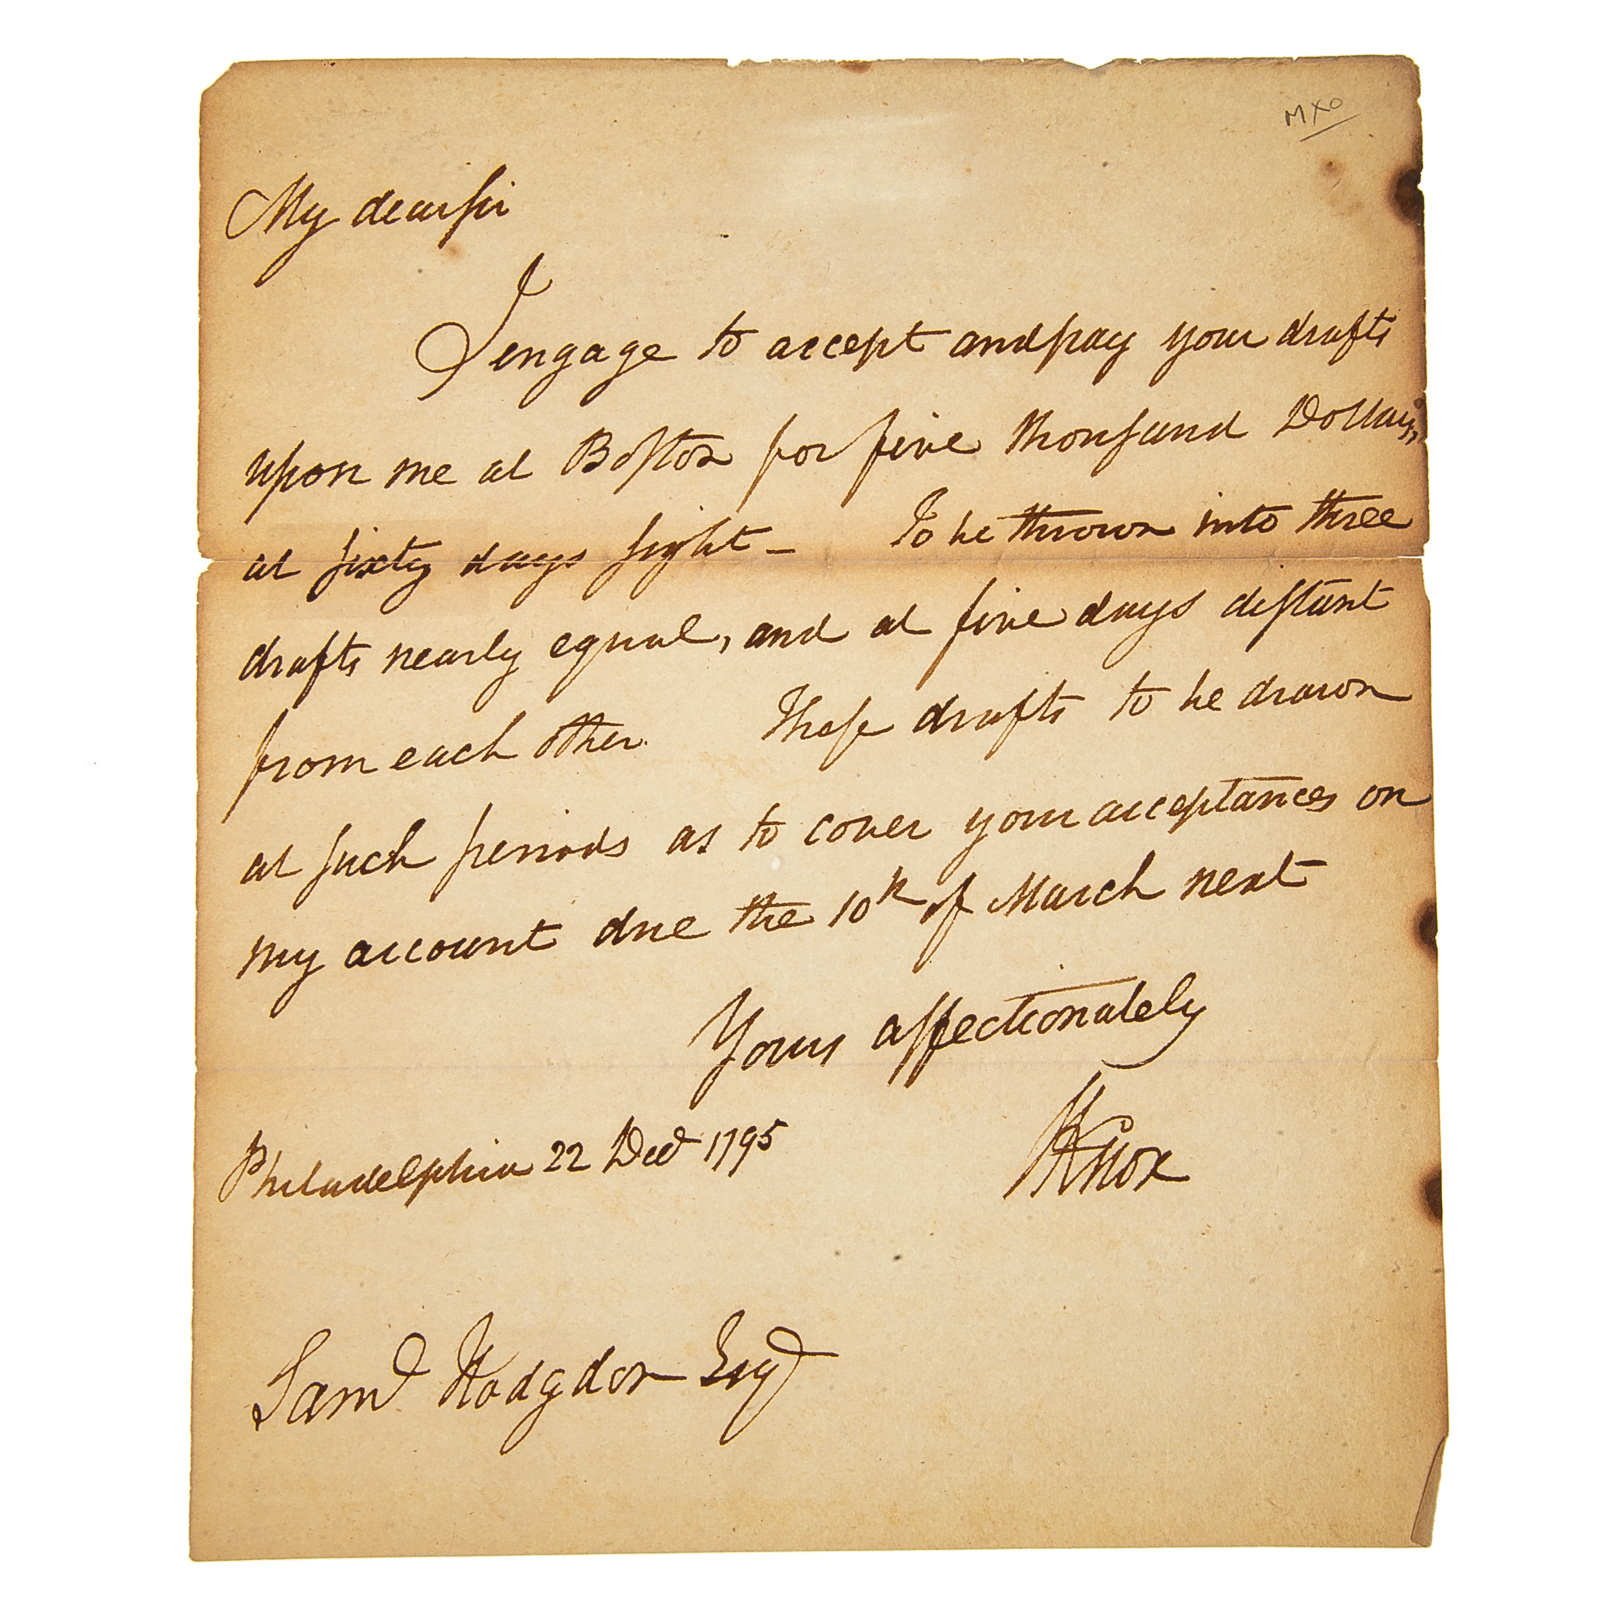 MXO
My dear sir
I engage to accept and pay your drafts
upon me at Boston for five thousand Dollars,
at sixty days sight – To be thrown into three
drafts nearly equal, and at five days distant
from each other. These drafts to be drawn
at such periods as to cover your acceptances on
my account due the 10th of March next
Yours affectionately
HKnox
Philadelphia 22 Decr 1795
Saml Hodgdon Esqr